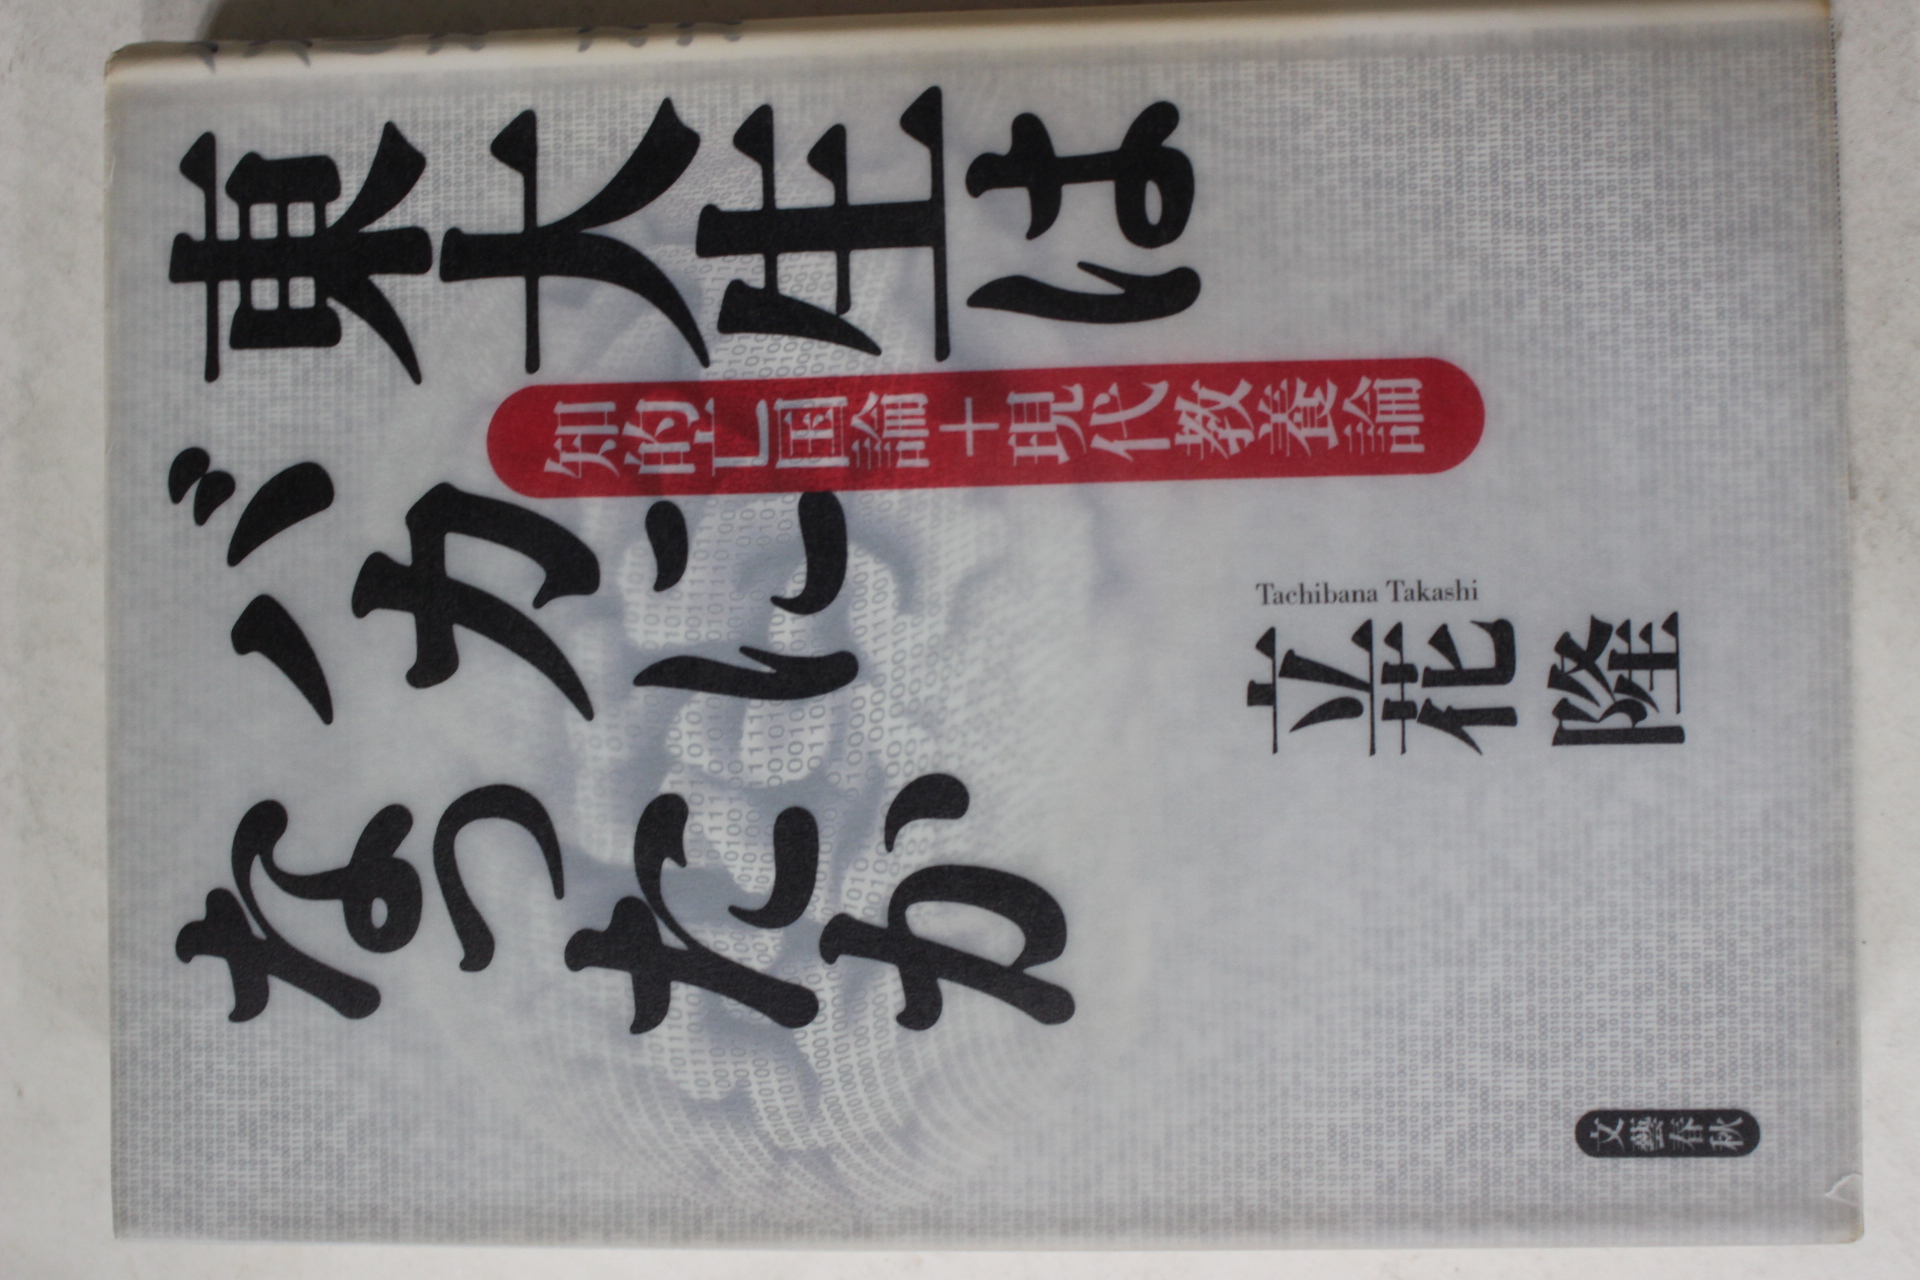 東大生は
バカに
なったか
知的亡国論+現代教養論
Tachibana Takashi
立花隆
文藝春秋